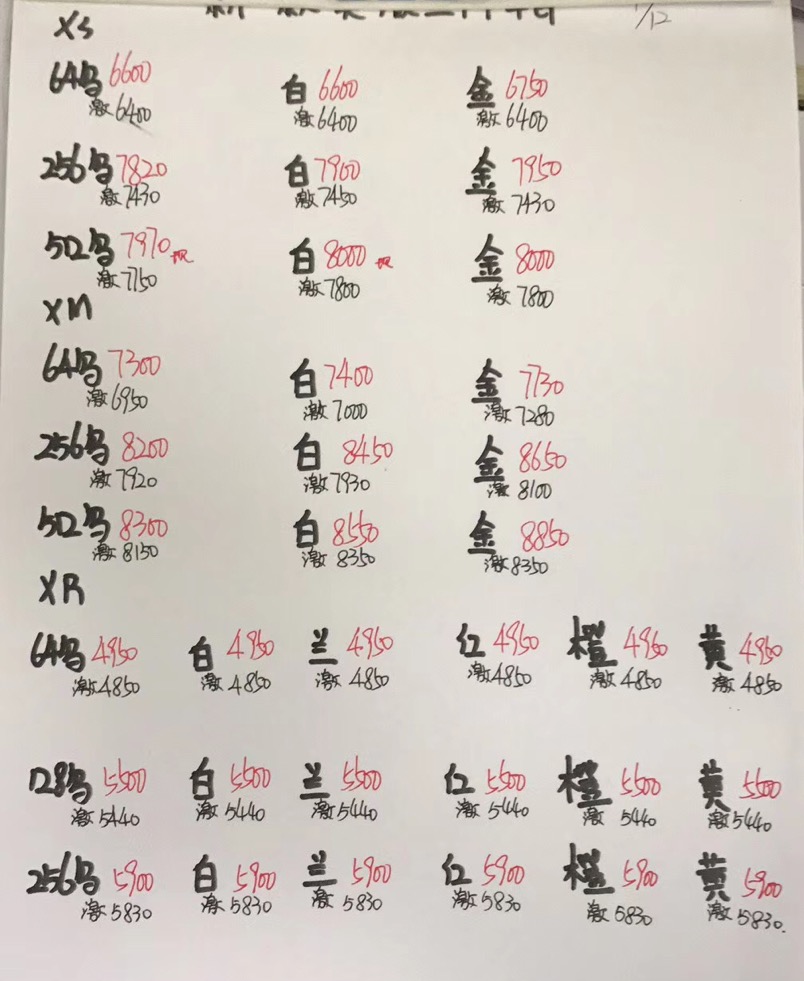 1/12
XS
64乌 6600 白 6600 金 6750
激6400 激6400 激6400
256乌 7820 白 7900 金 7950
激7430 激7450 激7430
512乌 7970 现 白 8000 现 金 8000
激7750 激7800 激7800
XM
64乌 7300 白 7400 金 7730
激6950 激7000 激7280
256乌 8200 白 8450 金 8650
激7920 激7930 激8100
512乌 8300 白 8550 金 8850
激8150 激8350 激8350
XR
64乌 4950 白 4950 兰 4950 红 4950 橙 4950 黄 4950
激4850 激4850 激4850 激4850 激4850 激4850
128乌 5500 白 5500 兰 5500 红 5500 橙 5500 黄 5500
激5440 激5440 激5440 激5440 激5440 激5440
256乌 5900 白 5900 兰 5900 红 5900 橙 5900 黄 5900
激5830 激5830 激5830 激5830 激5830 激5830.